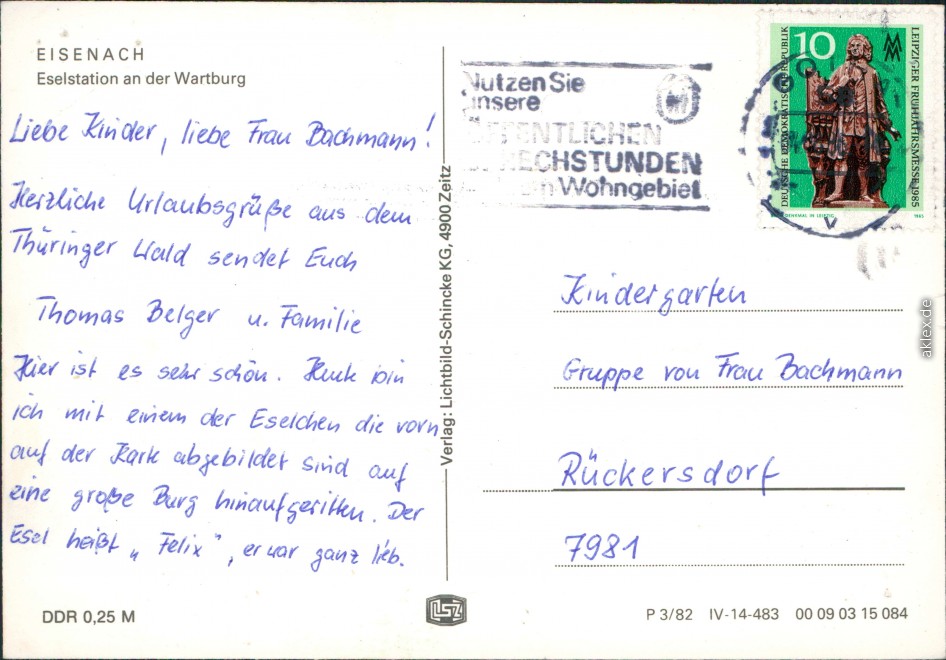 EISENACH
Eselstation an der Wartburg
Liebe Kinder, liebe Frau Bachmann!
Herzliche Urlaubsgrüße aus dem
Thüringer Wald sendet Euch
Thomas Belger u. Familie
Hier ist es sehr schön. Heute bin
ich mit einem der Eselchen die vorn
auf der Karte abgebildet sind auf
eine große Burg hinaufgeritten. Der
Esel heißt „Felix", er war ganz lieb.
DDR 0,25 M
Verlag: Lichtbild-Schincke KG, 4900 Zeitz
LSZ
Nutzen Sie
unsere
ÖFFENTLICHEN
SPRECHSTUNDEN
Wohngebiet
10
DEUTSCHE DEMOKRATISCHE REPUBLIK
LEIPZIGER FRÜHJAHRSMESSE 1985
DENKMAL IN LEIPZIG
1985
Kindergarten
Gruppe von Frau Bachmann
Rückersdorf
7981
P 3/82 IV-14-483 00 09 03 15 084
aklex.de